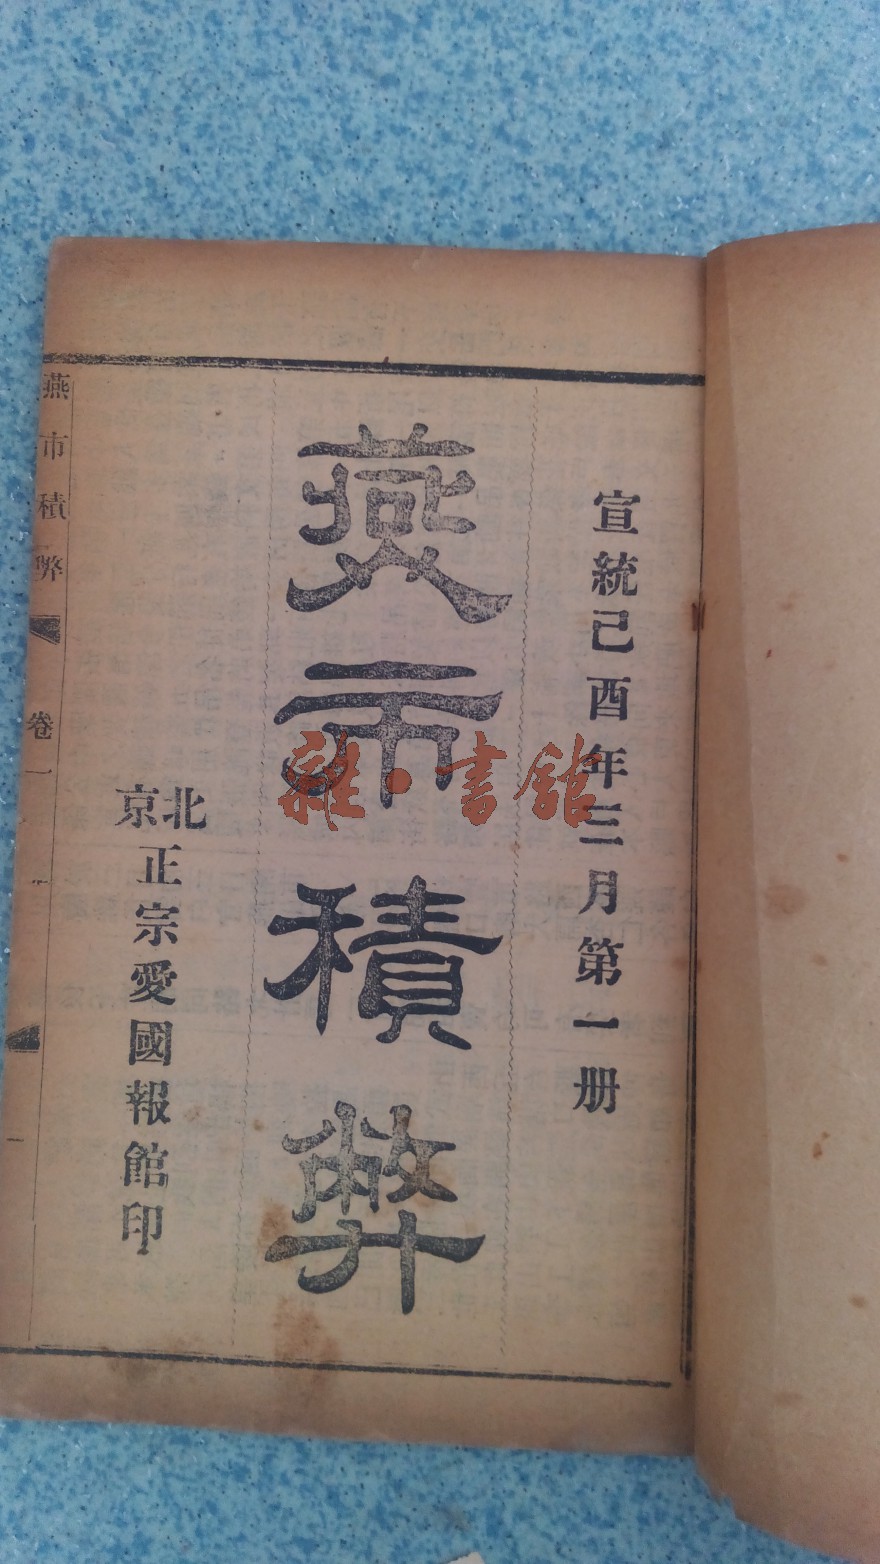 宣統己酉年三月第一册
燕市積弊
北京
正宗愛國報館印
燕市積弊
卷一
雜·書館